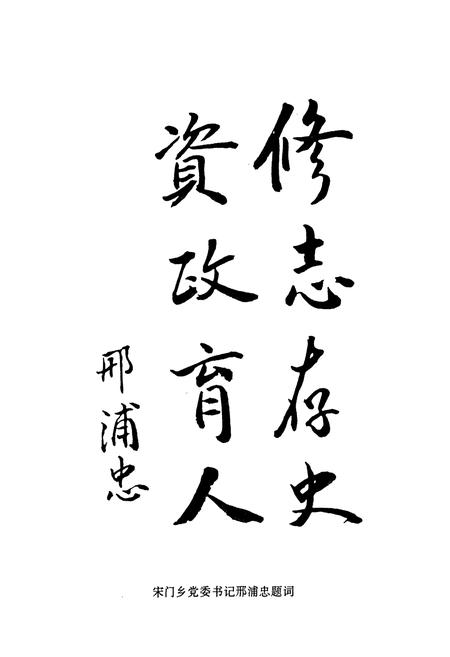 修志存史
資政育人
邢浦忠
宋门乡党委书记邢浦忠题词